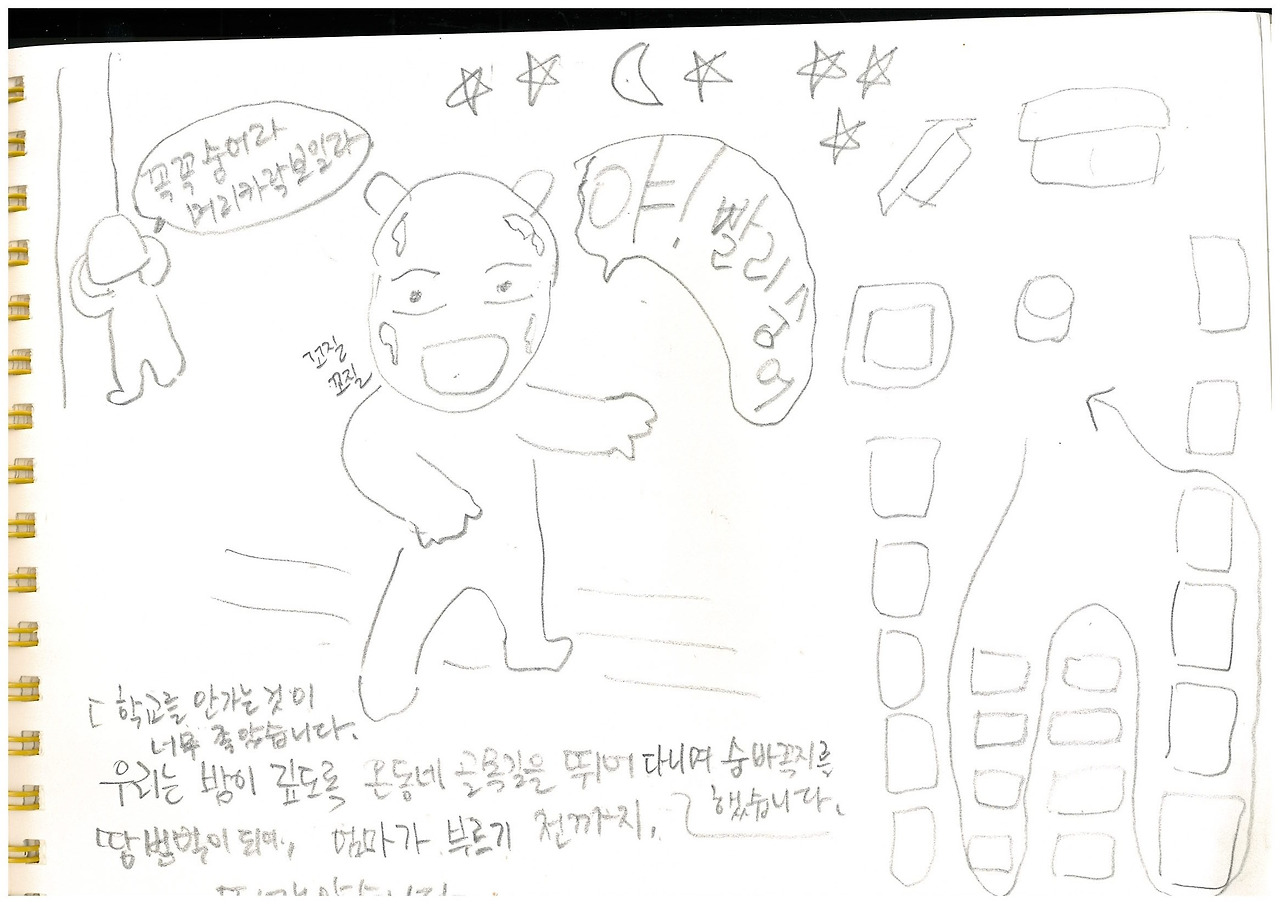 꼭꼭 숨어라
머리카락 보일라
야! 빨리 숨어
꼬질
꼬질
학교를 안가는 것이
너무 좋았습니다.
우리는 밤이 깊도록 온동네 골목길을 뛰어 다니며 숨바꼭지를
했습니다.
땅벌벅이 되어, 엄마가 부르기 전까지,